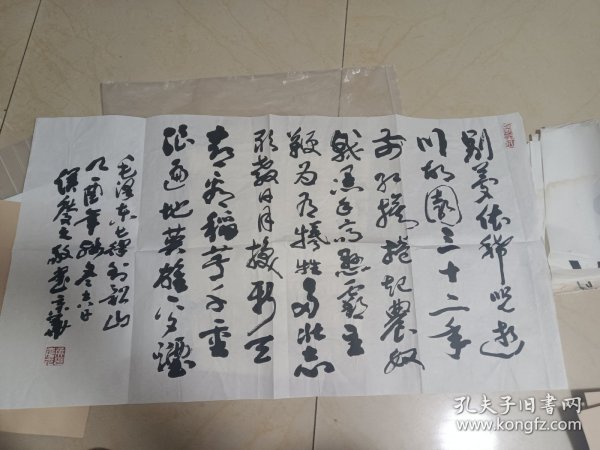 别梦依稀咒逝
川故园三十二年
前红旗捲起农奴
戟黑手高悬霸主
鞭为有牺牲多壮志
敢教日月换新天
喜看稻菽千重
浪遍地英雄下夕烟
毛泽东七律到韶山
乙酉年
孔夫子旧书网
www.kongfz.com